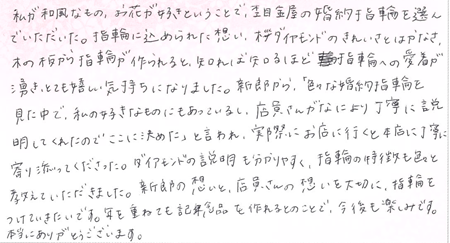 私が和風なもの、お花が好きということで、杢目金屋の婚約指輪を選ん
でいただいた。指輪に込められた想い、桜ダイヤモンドのきれいさとはかなさ、
木の板から指輪が作られると、知れば知るほど指輪への愛着が
湧き、とても嬉しい気持ちになりました。新郎から、「色々な婚約指輪を
見た中で、私の好きなものにもあっているし、店員さんがなにより丁寧に説
明してくれたのでここに決めた」と言われ、実際にお店に行くと本当に丁寧に
寄り添ってくださった。ダイヤモンドの説明も分かりやすく、指輪の特徴も色々と
教えていただきました。新郎の想いと、店員さんの想いを大切に、指輪を
つけていきたいです。年を重ねても記念品を作れるとのことで、今後も楽しみです。
本当にありがとうございます。